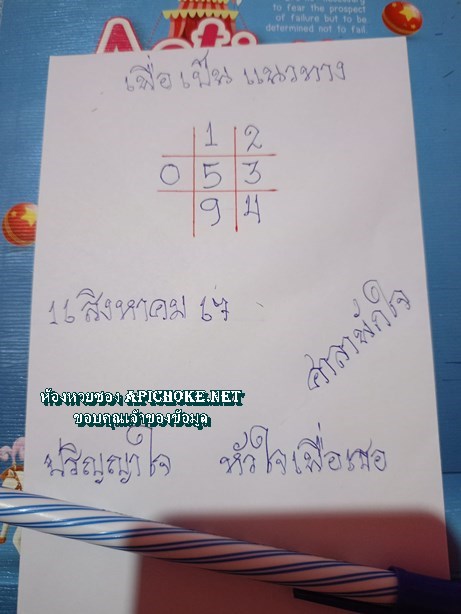 to fear the prospect
of failure but to be
determined not to fail.
เพื่อเป็นแนวทาง
1 2
0 5 3
9 4
16 สิงหาคม 67
ศาลาพักใจ
ห้องหวยซอง APICHOKE.NET
ขอบคุณเจ้าของข้อมูล
ปริญญาใจ หัวใจเพื่อเธอ